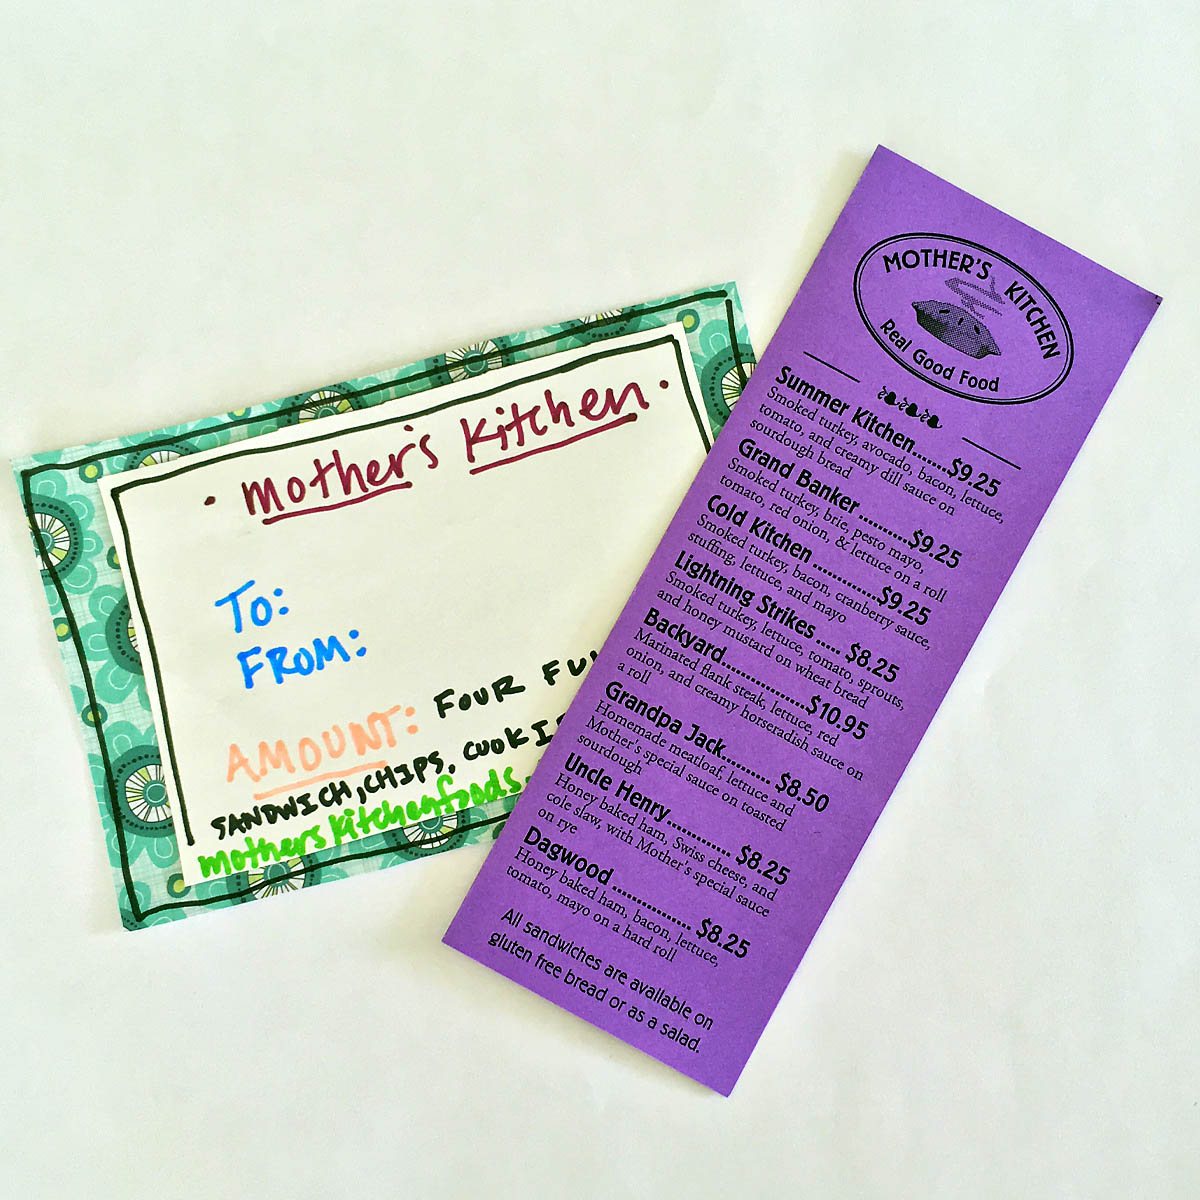 · Mother's Kitchen ·
TO:
FROM:
AMOUNT: FOUR
SANDWICH, CHIPS, COOKIE
motherskitchenfoods.
MOTHER'S KITCHEN
Real Good Food
Summer Kitchen.......$9.25
Smoked turkey, avocado, bacon, lettuce,
tomato, and creamy dill sauce on
sourdough bread
Grand Banker..........$9.25
Smoked turkey, brie, pesto mayo,
tomato, red onion, & lettuce on a roll
Cold Kitchen.............$9.25
Smoked turkey, bacon, cranberry sauce,
stuffing, lettuce, and mayo
Lightning Strikes..... $8.25
Smoked turkey, lettuce, tomato, sprouts,
and honey mustard on wheat bread
Backyard.................$10.95
Marinated flank steak, lettuce, red
onion, and creamy horseradish sauce on
a roll
Grandpa Jack.......... $8.50
Homemade meatloaf, lettuce and
Mother's special sauce on toasted
sourdough
Uncle Henry............. $8.25
Honey baked ham, Swiss cheese, and
cole slaw, with Mother's special sauce
on rye
Dagwood................ $8.25
Honey baked ham, bacon, lettuce,
tomato, mayo on a hard roll
All sandwiches are available on
gluten free bread or as a salad.